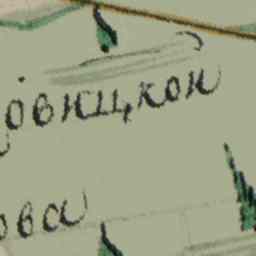 овицкои
ова